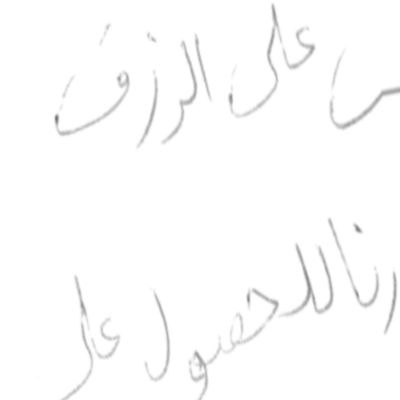 على الرزق
رنا للحصول على